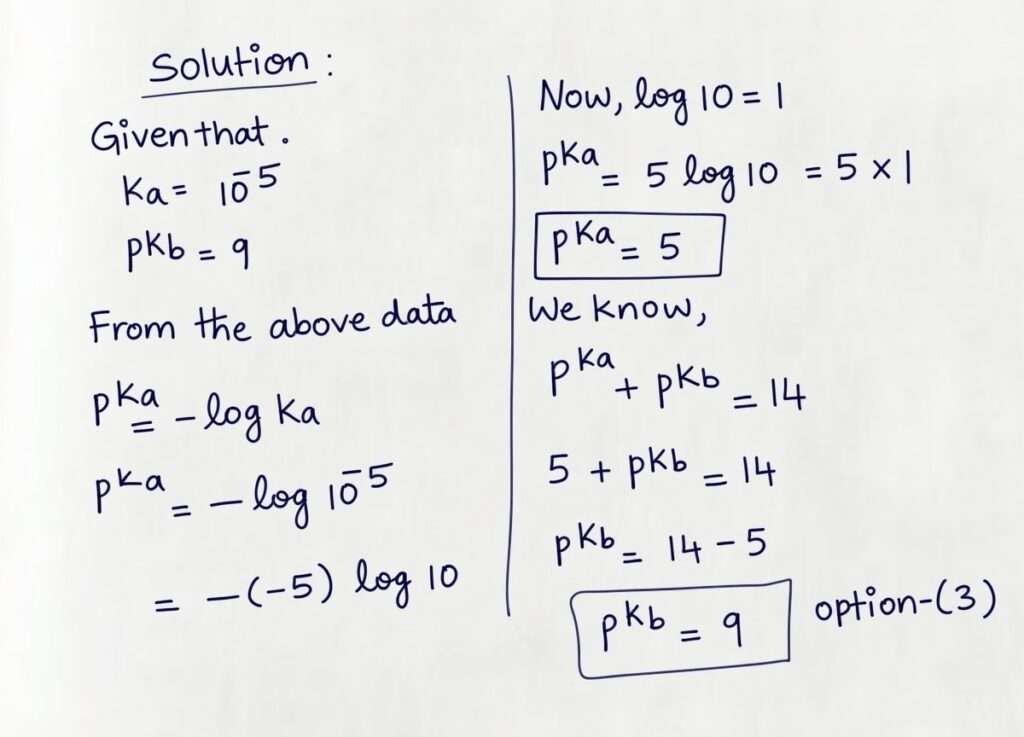 Solution :
Given that .
Ka = 10⁻⁵
pKb = 9
From the above data
pKa = - log Ka
pKa = - log 10⁻⁵
= -(-5) log 10
Now, log 10 = 1
pKa = 5 log 10 = 5 x 1
pKa = 5
We know,
pKa + pKb = 14
5 + pKb = 14
pKb = 14 - 5
pKb = 9 option-(3)